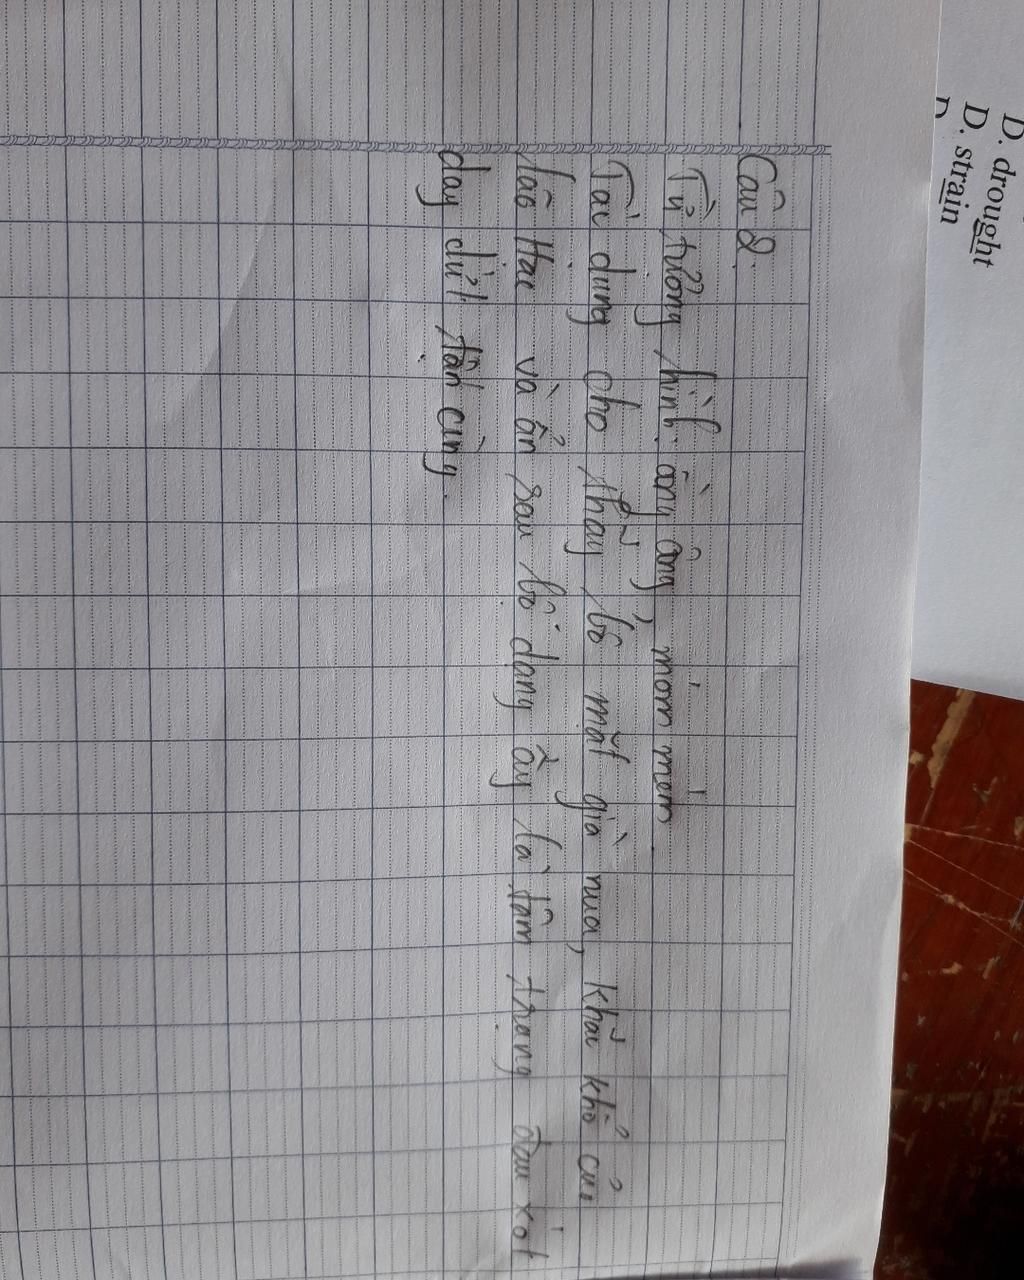 D. drought
D. strain
Câu 2:
Từ tượng hình: ầng ậng, móm mém.
Tác dụng cho thấy bộ mặt già nua, khắc khổ của
lão Hạc và ẩn sau bộ dạng ấy là tâm trạng đau xót
day dứt tận cùng.